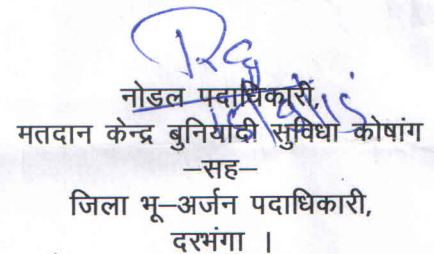 नोडल पदाधिकारी,
मतदान केन्द्र बुनियादी सुविधा कोषांग
–सह–
जिला भू–अर्जन पदाधिकारी,
दरभंगा ।